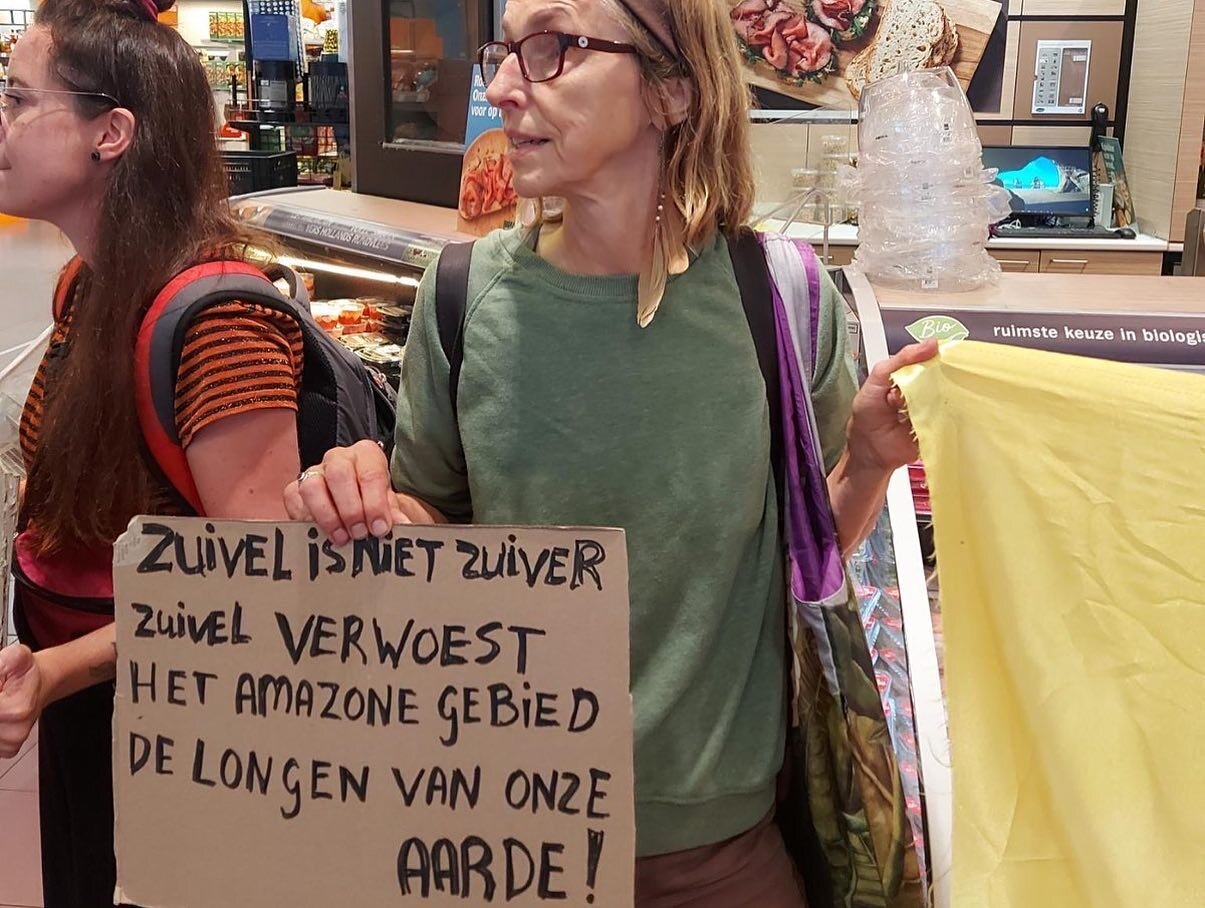 voor op
VERS HOLLANDS RUNDVLEES
Bio
ruimste keuze in biologis
ZUIVEL iS NiET ZUiVER
ZUiVEL VERWOEST
HET AMAZONE GEBiED
DE LONGEN VAN ONZE
AARDE!